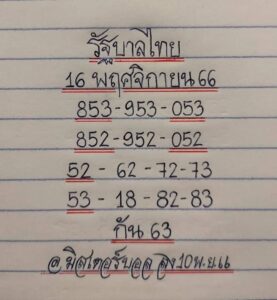 รัฐบาลไทย
16 พฤศจิกายน 66
853-953-053
852-952-052
52 - 62 -72-73
53 - 18 - 82-83
กัน 63
อ.มิสเทอร์บอล ลง 10 พ.ย. 66